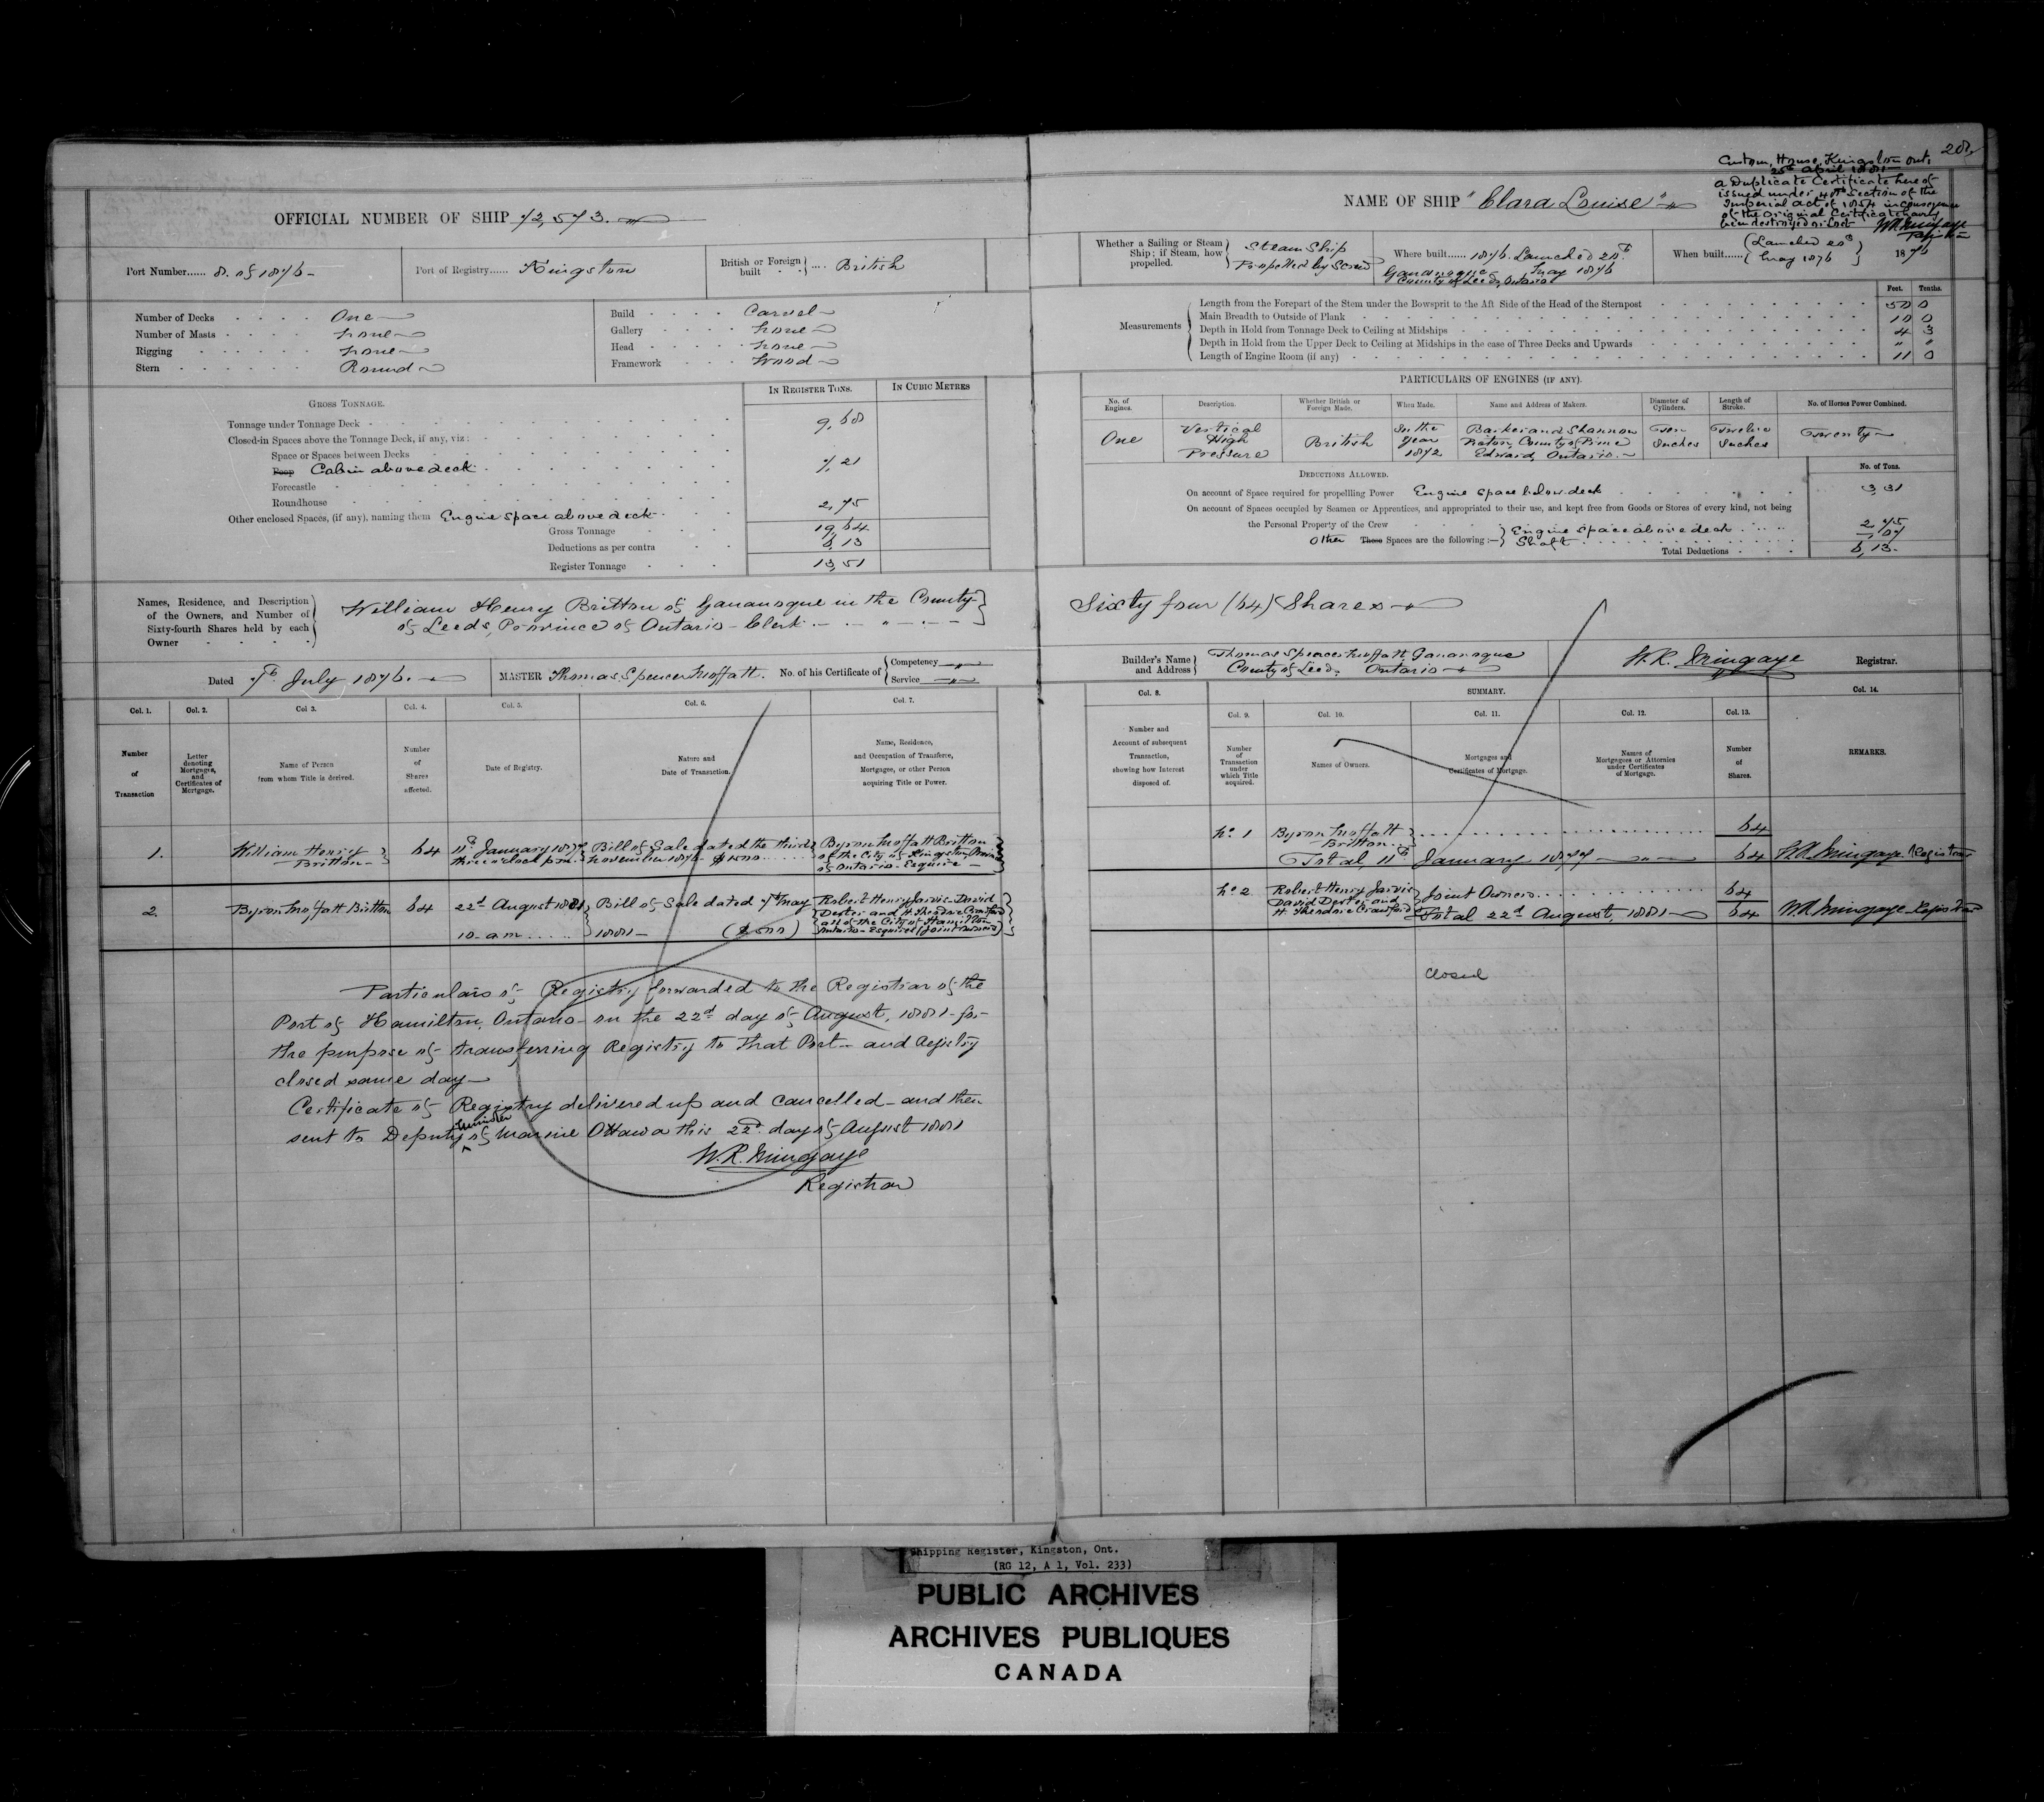 OFFICIAL NUMBER OF SHIP 72,573.
Port Number...... 8. of 1876 –
Port of Registry...... Kingston
British or Foreign built .... British
Number of Decks One
Number of Masts none
Rigging none
Stern Round
Build Carvel
Gallery none
Head none
Framework Wood
IN REGISTER TONS. IN CUBIC METRES
GROSS TONNAGE.
Tonnage under Tonnage Deck 9,68
Closed-in Spaces above the Tonnage Deck, if any, viz:
Space or Spaces between Decks
Poop Cabin above deck 7,21
Forecastle
Roundhouse
Other enclosed Spaces, (if any), naming them Engine space above deck 2,75
Gross Tonnage 19,64
Deductions as per contra 6,13
Register Tonnage 13,51
Names, Residence, and Description
of the Owners, and Number of
Sixty-fourth Shares held by each
Owner
William Henry Britton of Gananoque in the County
of Leeds, Province of Ontario – Clerk
Dated 7th July 1876.
MASTER Thomas Spencer Moffatt.
No. of his Certificate of { Competency
Service
Col. 1. Col. 2. Col 3. Col. 4. Col. 5. Col. 6. Col. 7.
Number of Transaction
Letter denoting Mortgages, and Certificates of Mortgage.
Name of Person from whom Title is derived.
Number of Shares affected.
Date of Registry.
Nature and Date of Transaction.
Name, Residence, and Occupation of Transferee, Mortgagee, or other Person acquiring Title or Power.
1. William Henry Britton 64 11th January 1877 three o'clock p.m. Bill of Sale dated the third November 1876 $1500 Byron Moffatt Britton of the City of Kingston, Province of Ontario – Esquire –
2. Byron Moffatt Britton 64 22d August 1881 10 a.m. Bill of Sale dated 7th May 1881 – ($500) Robert Henry Jarvis – David Dexter and H. Thendrie Crawford all of the City of Hamilton Ontario – Esquires (Joint owners)
Particulars of Registry forwarded to the Registrar of the
Port of Hamilton, Ontario – on the 22d day of August, 1881 – for
the purpose of transferring Registry to that Port – and Registry
closed same day –
Certificate of Registry delivered up and cancelled – and then
sent to Deputy Minister of Marine Ottawa this 22d day of August 1881
W. R. Mingaye
Registrar
208
Custom House, Kingston Ont.
25th April 1881
a Duplicate Certificate here of
issued under 40th section of the
Imperial Act of 1854 in consequence
of the original Certificate having
been destroyed or lost
W R Mingaye
Registrar
NAME OF SHIP "Clara Louise"
Whether a Sailing or Steam Ship; if Steam, how propelled.
Steam Ship
Propelled by Screw
Where built...... 1876. Launched 20th May 1876
Gananoque
County of Leeds, Ontario
When built...... (Launched 20th May 1876) 1876
Feet. Tenths.
Measurements
Length from the Forepart of the Stem under the Bowsprit to the Aft Side of the Head of the Sternpost 50 0
Main Breadth to Outside of Plank 10 0
Depth in Hold from Tonnage Deck to Ceiling at Midships 4 3
Depth in Hold from the Upper Deck to Ceiling at Midships in the case of Three Decks and Upwards " "
Length of Engine Room (if any) 11 0
PARTICULARS OF ENGINES (IF ANY).
No. of Engines. Description. Whether British or Foreign Made. When Made. Name and Address of Makers. Diameter of Cylinders. Length of Stroke. No. of Horses Power Combined.
One Vertical High Pressure British In the year 1872 Barker and Shannon Picton, County of Prince Edward, Ontario. Ten Inches Twelve Inches Twenty
DEDUCTIONS ALLOWED. No. of Tons.
On account of Space required for propelling Power Engine space below deck 3,31
On account of Spaces occupied by Seamen or Apprentices, and appropriated to their use, and kept free from Goods or Stores of every kind, not being
the Personal Property of the Crew
Other These Spaces are the following:— } Engine space above deck 2,75
Shaft ,07
Total Deductions 6,13
Sixty four (64) Shares
Builder's Name and Address
Thomas Spencer Moffatt Gananoque
County of Leeds Ontario
W. R. Mingaye Registrar.
Col. 8. SUMMARY. Col. 14.
Col. 9. Col. 10. Col. 11. Col. 12. Col. 13.
Number and Account of subsequent Transaction, showing how Interest disposed of.
Number of Transaction under which Title acquired.
Names of Owners.
Mortgages and Certificates of Mortgage.
Names of Mortgagees or Attornies under Certificates of Mortgage.
Number of Shares.
REMARKS.
No. 1 Byron Moffatt Britton 64
Total, 11th January 1877 64 W.R. Mingaye Registrar
No. 2 Robert Henry Jarvis David Dexter and H. Thendrie Crawford Joint Owners 64
Total 22d August, 1881 64 W.R. Mingaye Registrar
Closed
Shipping Register, Kingston, Ont.
(RG 12, A 1, Vol. 233)
PUBLIC ARCHIVES
ARCHIVES PUBLIQUES
CANADA